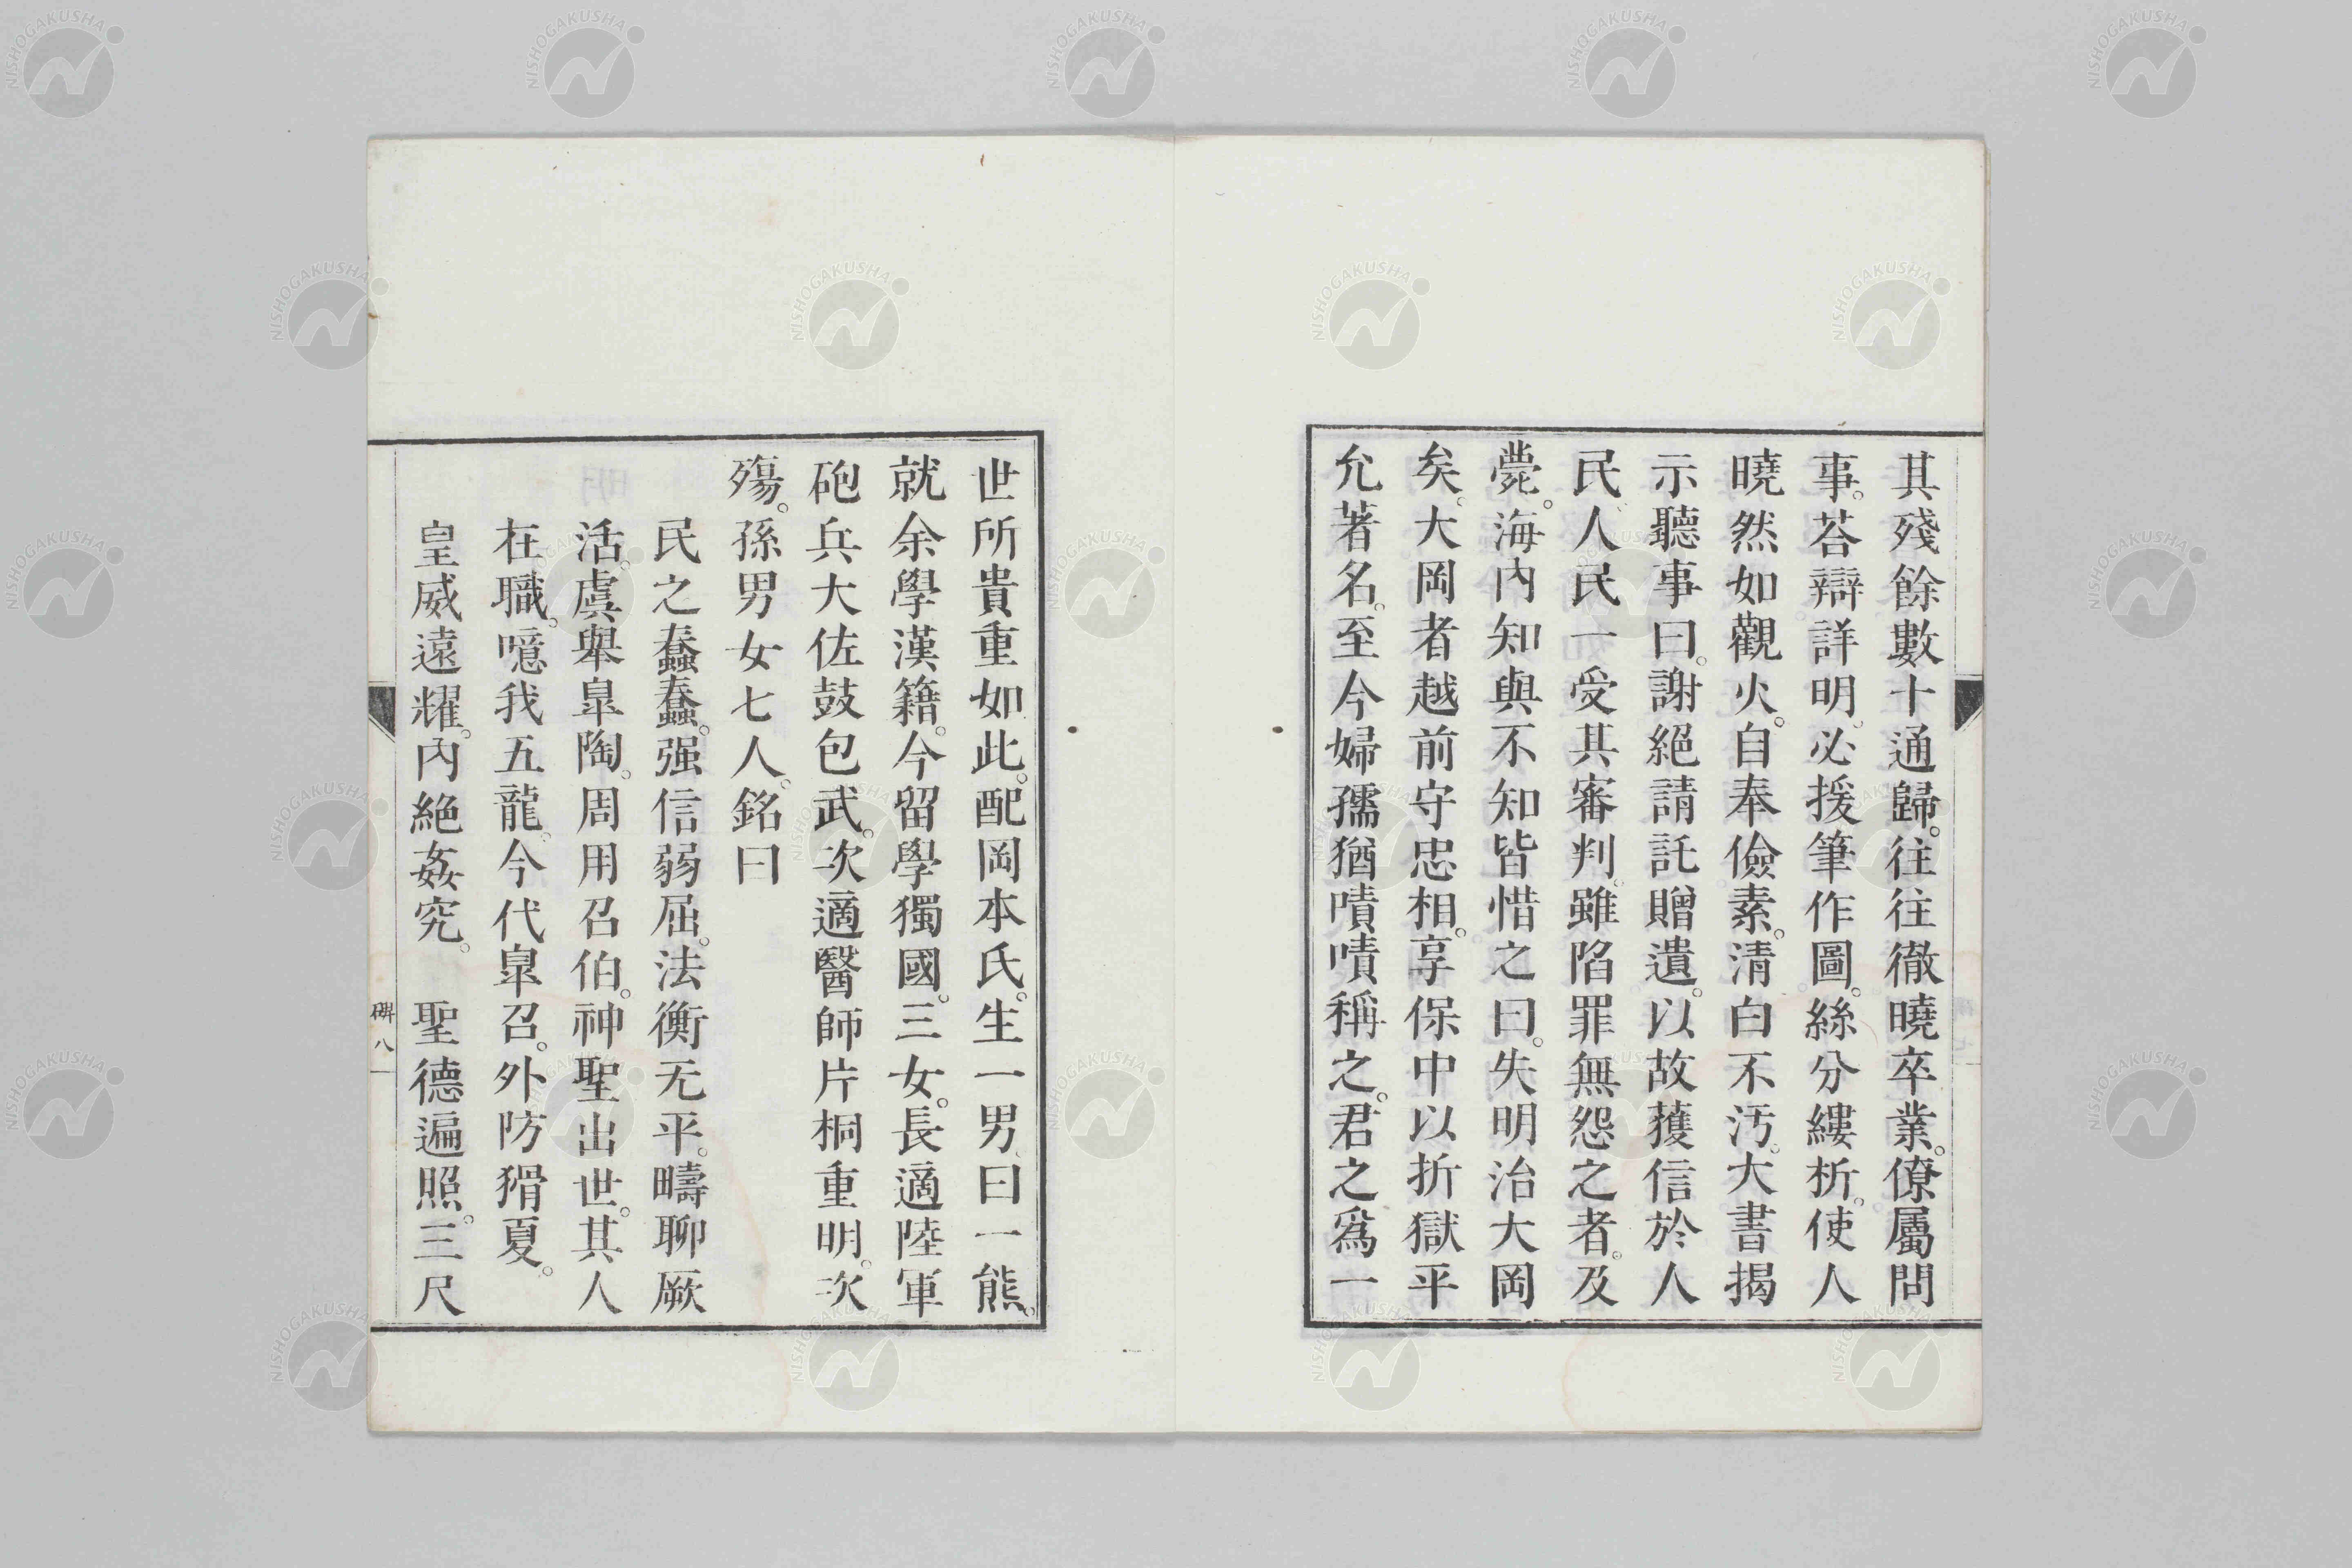 其殘餘數十通歸。往往徹曉卒業。僚屬問
事。荅辯詳明。必援筆作圖。絲分縷析。使人
曉然如觀火。自奉儉素。清白不汚。大書揭
示聽事曰。謝絕請託贈遺。以故獲信於人
民。人民一受其審判。雖陷罪無怨之者。及
薨。海內知與不知皆惜之曰。失明治大岡
矣。大岡者越前守忠相。享保中以折獄平
允著名。至今婦孺猶嘖嘖稱之。君之爲一
世所貴重如此。配岡本氏。生一男、曰一熊。
就余學漢籍。今留學獨國。三女。長適陸軍
砲兵大佐鼓包武。次適醫師片桐重明。次
殤。孫男女七人。銘曰
民之蠢蠢。强信弱屈。法衡无平。疇聊厥
活。虞舉皐陶。周用召伯。神聖出世。其人
在職。噫我五龍。今代皐召。外防猾夏。
皇威遠耀。內絕姦宄。 聖德遍照。三尺
碑 八
NISHOGAKUSHA